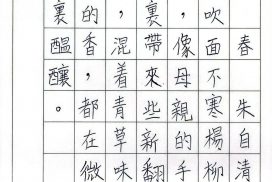 春　朱自清
吹面不寒楊柳
，像母親的手
裏帶來些新翻
，混着青草味
的香，都在微
裏醞釀。